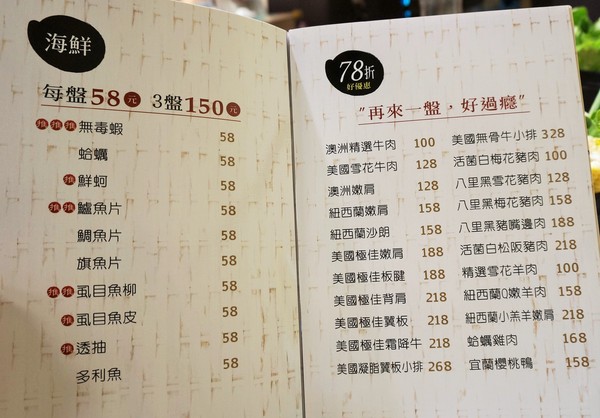 海鮮
每盤58元 3盤150元
推 推 推 無毒蝦 58
蛤蠣 58
推 鮮蚵 58
推 推 鱸魚片 58
鯛魚片 58
旗魚片 58
推 推 虱目魚柳 58
推 虱目魚皮 58
推 透抽 58
多利魚 58
78折
好優惠
"再來一盤,好過癮"
澳洲精選牛肉 100
美國雪花牛肉 128
澳洲嫩肩 128
紐西蘭嫩肩 158
紐西蘭沙朗 158
美國極佳嫩肩 188
美國極佳板腱 188
美國極佳背肩 218
美國極佳翼板 218
美國極佳霜降牛 218
美國凝脂翼板小排 268
美國無骨牛小排 328
活菌白梅花豬肉 100
八里黑雪花豬肉 128
八里黑梅花豬肉 158
八里黑豬嘴邊肉 188
活菌白松阪豬肉 218
精選雪花羊肉 100
紐西蘭Q嫩羊肉 158
紐西蘭小羔羊嫩肩 218
蛤蠣雞肉 168
宜蘭櫻桃鴨 158